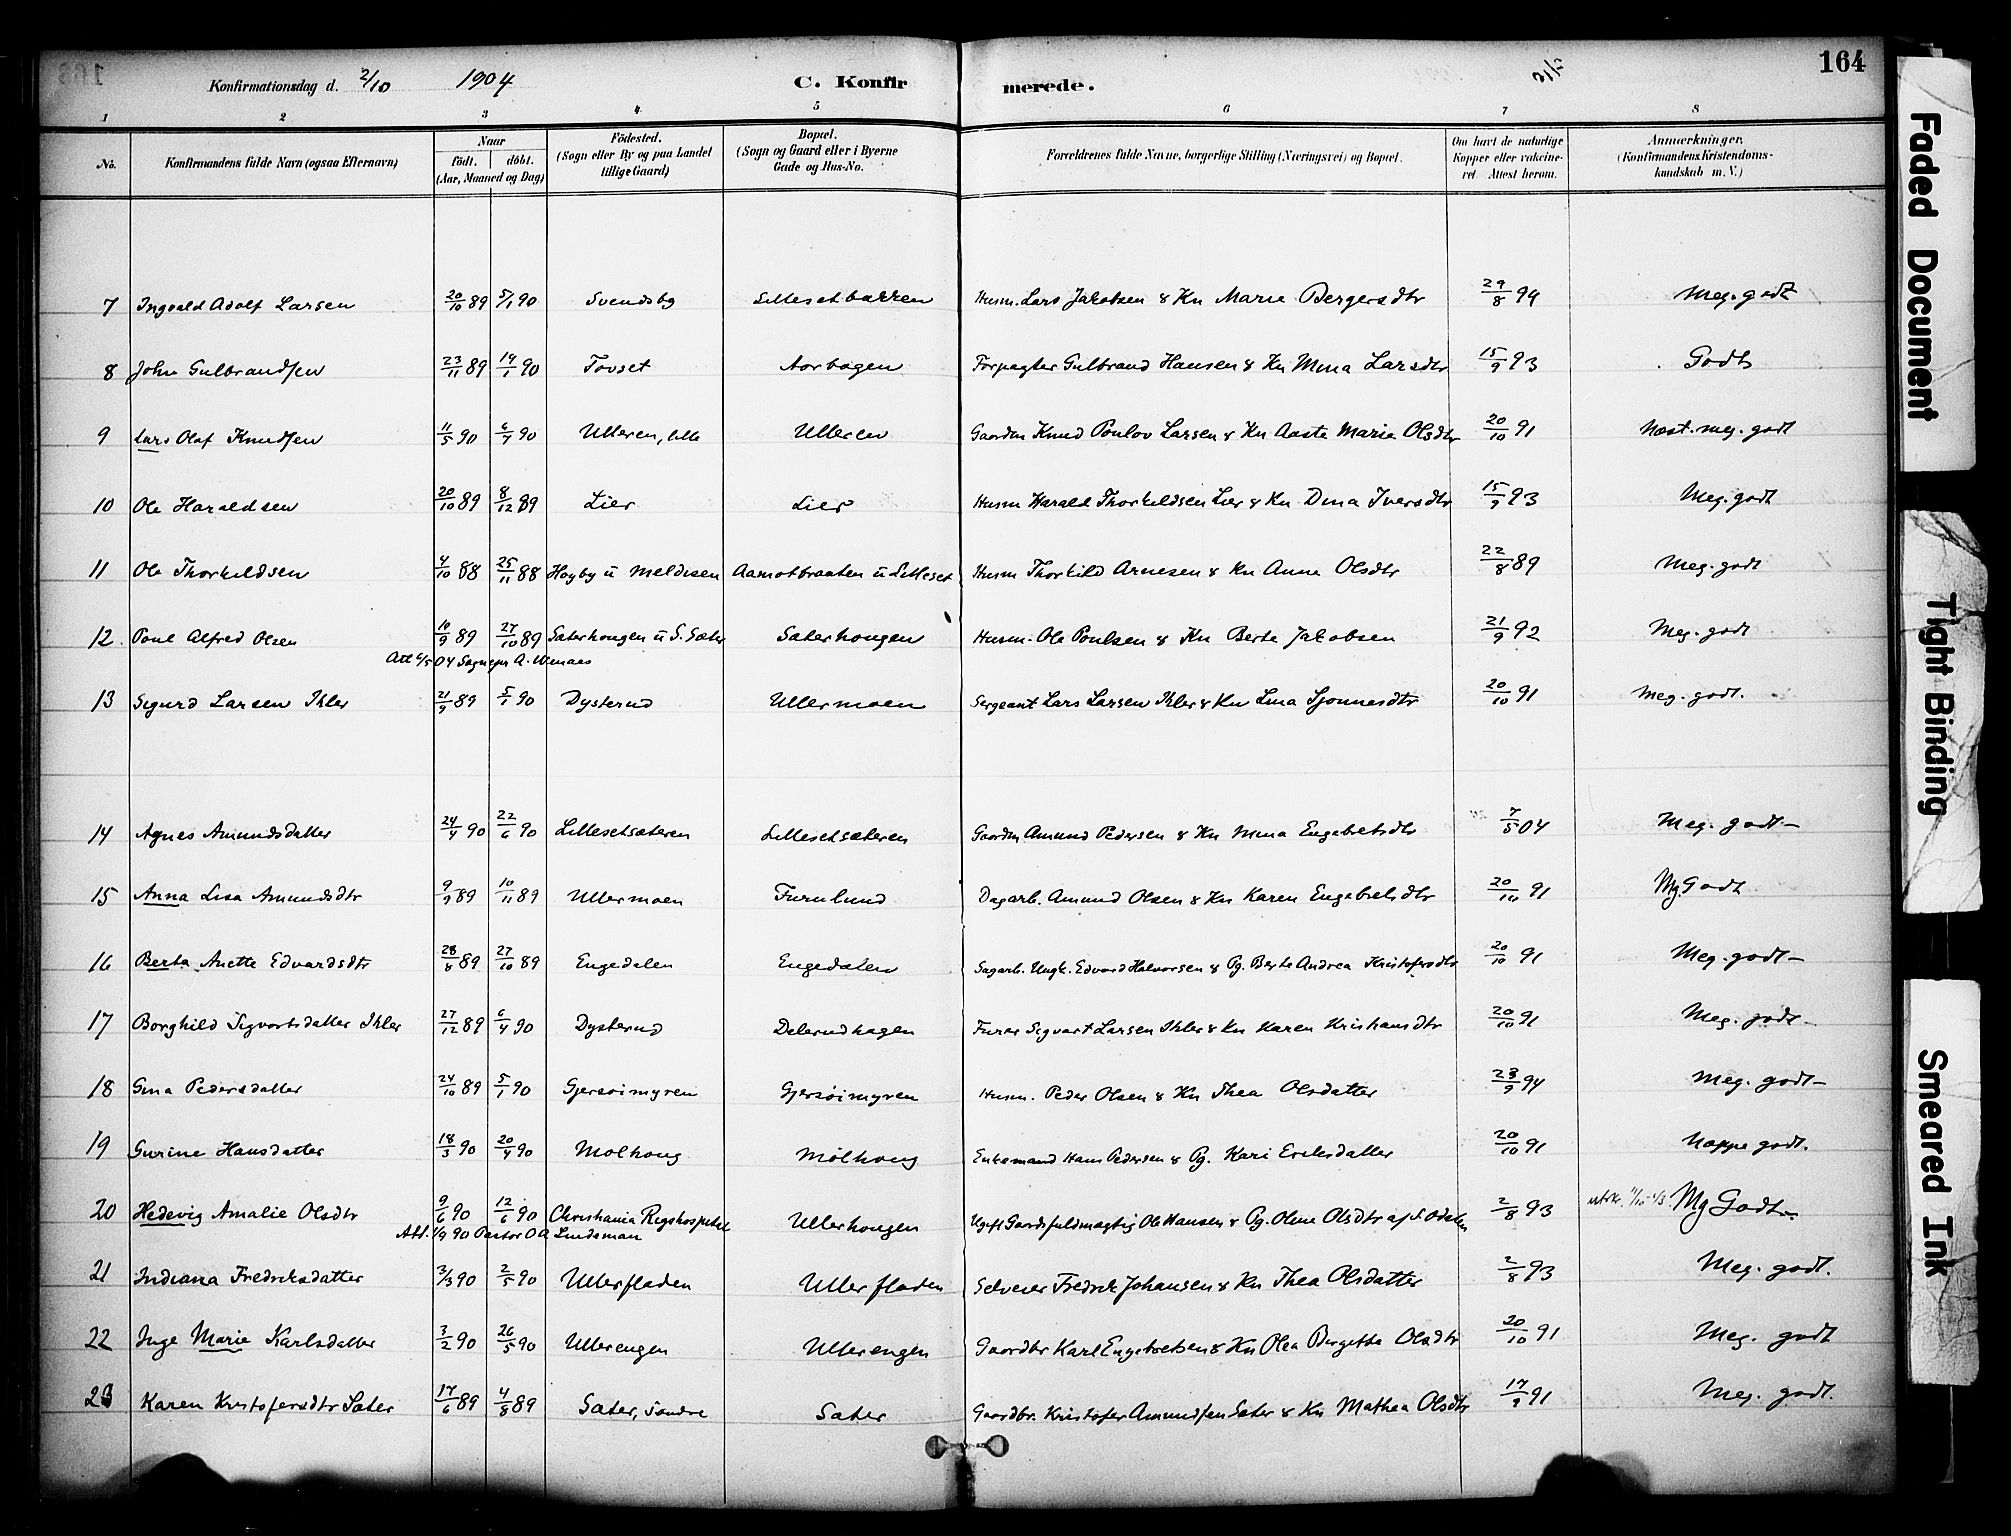 Konfirmationsdag d. 2/10 1904 C. Konfirmerede. 2/10 164
1 2 3 4 5 6 7 8
No. Konfirmandens fulde Navn (ogsaa Efternavn) Naar födt. döbt. (Aar, Maaned og Dag) Födested. (Sogn eller By og paa Landet tillige Gaard) Bopæl. (Sogn og Gaard eller i Byerne Gade og Hus-No. Forældrenes fulde Navne, borgerlige Stilling (Næringsvei) og Bopæl. Om havt de naturlige Kopper eller vaccineret Attest herom. Anmærkninger. (Konfirmandens Kristendomskundskab m. V.)
7 Ingvald Adolf Larsen 20/10 89 5/1 90 Svendsby Lillesetbakken Husm. Lars Jakobsen & Kn Marie Bergersdtr 29/8 94 Meg. godt
8 John Gulbrandsen 23/11 89 19/1 90 Tovset Aorbogen Forpagter Gulbrand Hansen & Kn Mina Larsdtr 15/9 93 Godt
9 Lars Olaf Knudsen 11/5 90 6/7 90 Ulleren, lille Ulleren Gaardm Knud Poulov Larsen & Kn Aaste Marie Olsdtr 20/10 91 Næst. meg. godt
10 Ole Haraldsen 20/10 89 8/12 89 Lier Lier Husm Harald Thorkildsen Lier & Kn Dina Iversdtr 15/9 93 Meg. godt
11 Ole Thorkildsen 4/10 88 25/11 88 Høyby u Meldisen Aamotbraaten u Lilleset Husm Thorkild Arnesen & Kn Anne Olsdtr 22/8 89 Meg. godt
12. Poul Alfred Olsen 10/9 89 27/10 89 Sæterhougen u S. Sæter Sæterhougen Husm. Ole Poulsen & Kn Berte Jakobsen 21/9 92 Meg. godt
Att 6/5 04 Sognepr A. Wenaes
13 Sigurd Larsen Ihler 21/9 89 5/1 90 Dysterud Ullermoen Sergeant Lars Larsen Ihler & Kn Lina Sjonnesdtr 20/10 91 Meg. godt.
14 Agnes Amundsdatter 24/4 90 22/6 90 Lillesetsæteren Lillesetsæteren Gaardm Amund Pedersen & Kn Mina Engebretsdtr 7/5 04 Meg. godt-
15 Anna Lisa Amundsdtr 9/9 89 10/11 89 Ullermoen Furulund Dagarb. Amund Olsen & Kn Karen Engebretsdtr 20/10 91 Mg Godt
16 Berta Anette Edvardsdtr 28/8 89 27/10 89 Engedalen Engedalen Sagarb. Ungk. Edvard Halvorsen & Pg. Berte Andrea Kristofersdtr 20/10 91 Meg. godt-
17 Borghild Sigvartsdatter Ihler 27/12 89 6/4 90 Dysterud Delerudhagen Furer Sigvart Larsen Ihler & Kn Karen Kristiansdtr 20/10 91 Meg. godt-
18 Gina Pedersdatter 24/10 89 5/1 90 Gjersøimyren Gjersøimyren Husm. Peder Olsen & Kn Thea Olsdatter 23/9 94 Meg. godt-
19 Gurine Hansdatter 18/3 90 20/4 90 Mølhoug Mølhoug Enkemand Hans Pedersen & Pg. Kari Eriksdatter 20/10 91 Nøppe godt.
20 Hedevig Amalie Olsdtr 9/6 90 12/6 90 Christiania Rigshospital Ullerhougen Ugift Gaardsfuldmægtig Ole Hansen & Pg. Oline Olsdtr af S. Odalen 2/8 93 Mg Godt.
Att. 1/9 90 Pastor O A Lindeman
21 Indiana Fredriksdatter 3/3 90 2/5 90 Ullerfladen Ullerfladen Selveier Fredrik Johansen & Kn Thea Olsdatter 2/8 93 Meg. godt.
22 Inge Marie Karlsdatter 3/2 90 26/5 90 Ullerengen Ullerengen Gaardbr Karl Engebretsen & Kn Olea Bergethe Olsdtr 20/10 91 Meg. godt
23 Karen Kristofersdtr Sæter 17/6 89 4/8 89 Sæter, søndre Sæter Gaardbr. Kristofer Amundsen Sæter & Kn Mathea Olsdtr 17/9 91 Meg. godt.
Faded Document
Tight Binding
Smeared Ink